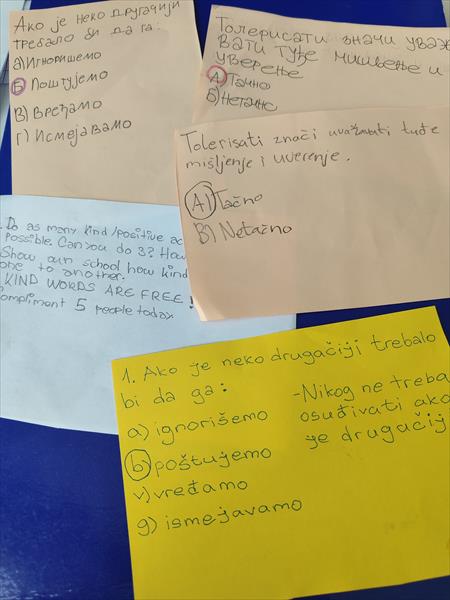 Ако је неко другачији
требало би да га:
а) Игноришемо
Б) Поштујемо
В) Вређамо
Г) Исмејавамо
Толерисати значи уваж
вати туђе мишљење и
уверење
А) Тачно
Б) Нетачно
Tolerisati znači uvažavati tuđe
mišljenje i uverenje.
A) Tačno
B) Netačno
Do as many kind/positive ac
possible. Can you do 3? How
Show our school how kind
one to another.
KIND WORDS ARE FREE!
ompliment 5 people today
1. Ako je neko drugačiji trebalo
bi da ga:
a) ignorišemo
b) poštujemo
v) vređamo
g) ismejavamo
-Nikog ne treba
osuđivati ako
je drugačij